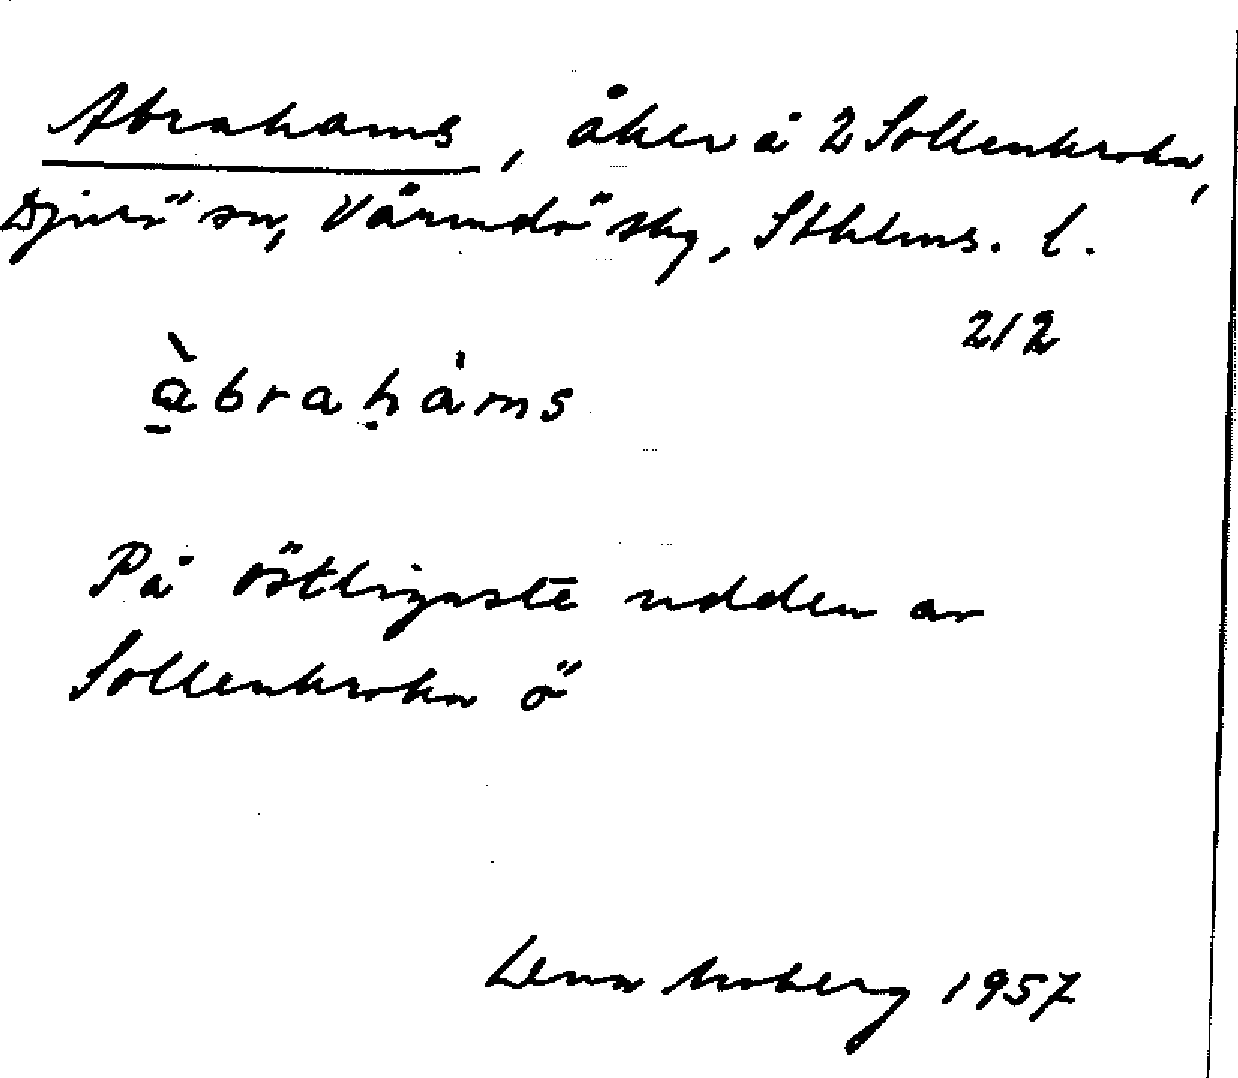 Abrahams, åker å 2 Sollenkroka,
Djurö sn, Värmdö skg, Sthlms. l.
212
à̱braḥȧms
På östligaste udden av
Sollenkroka ö
Lena Moberg 1957